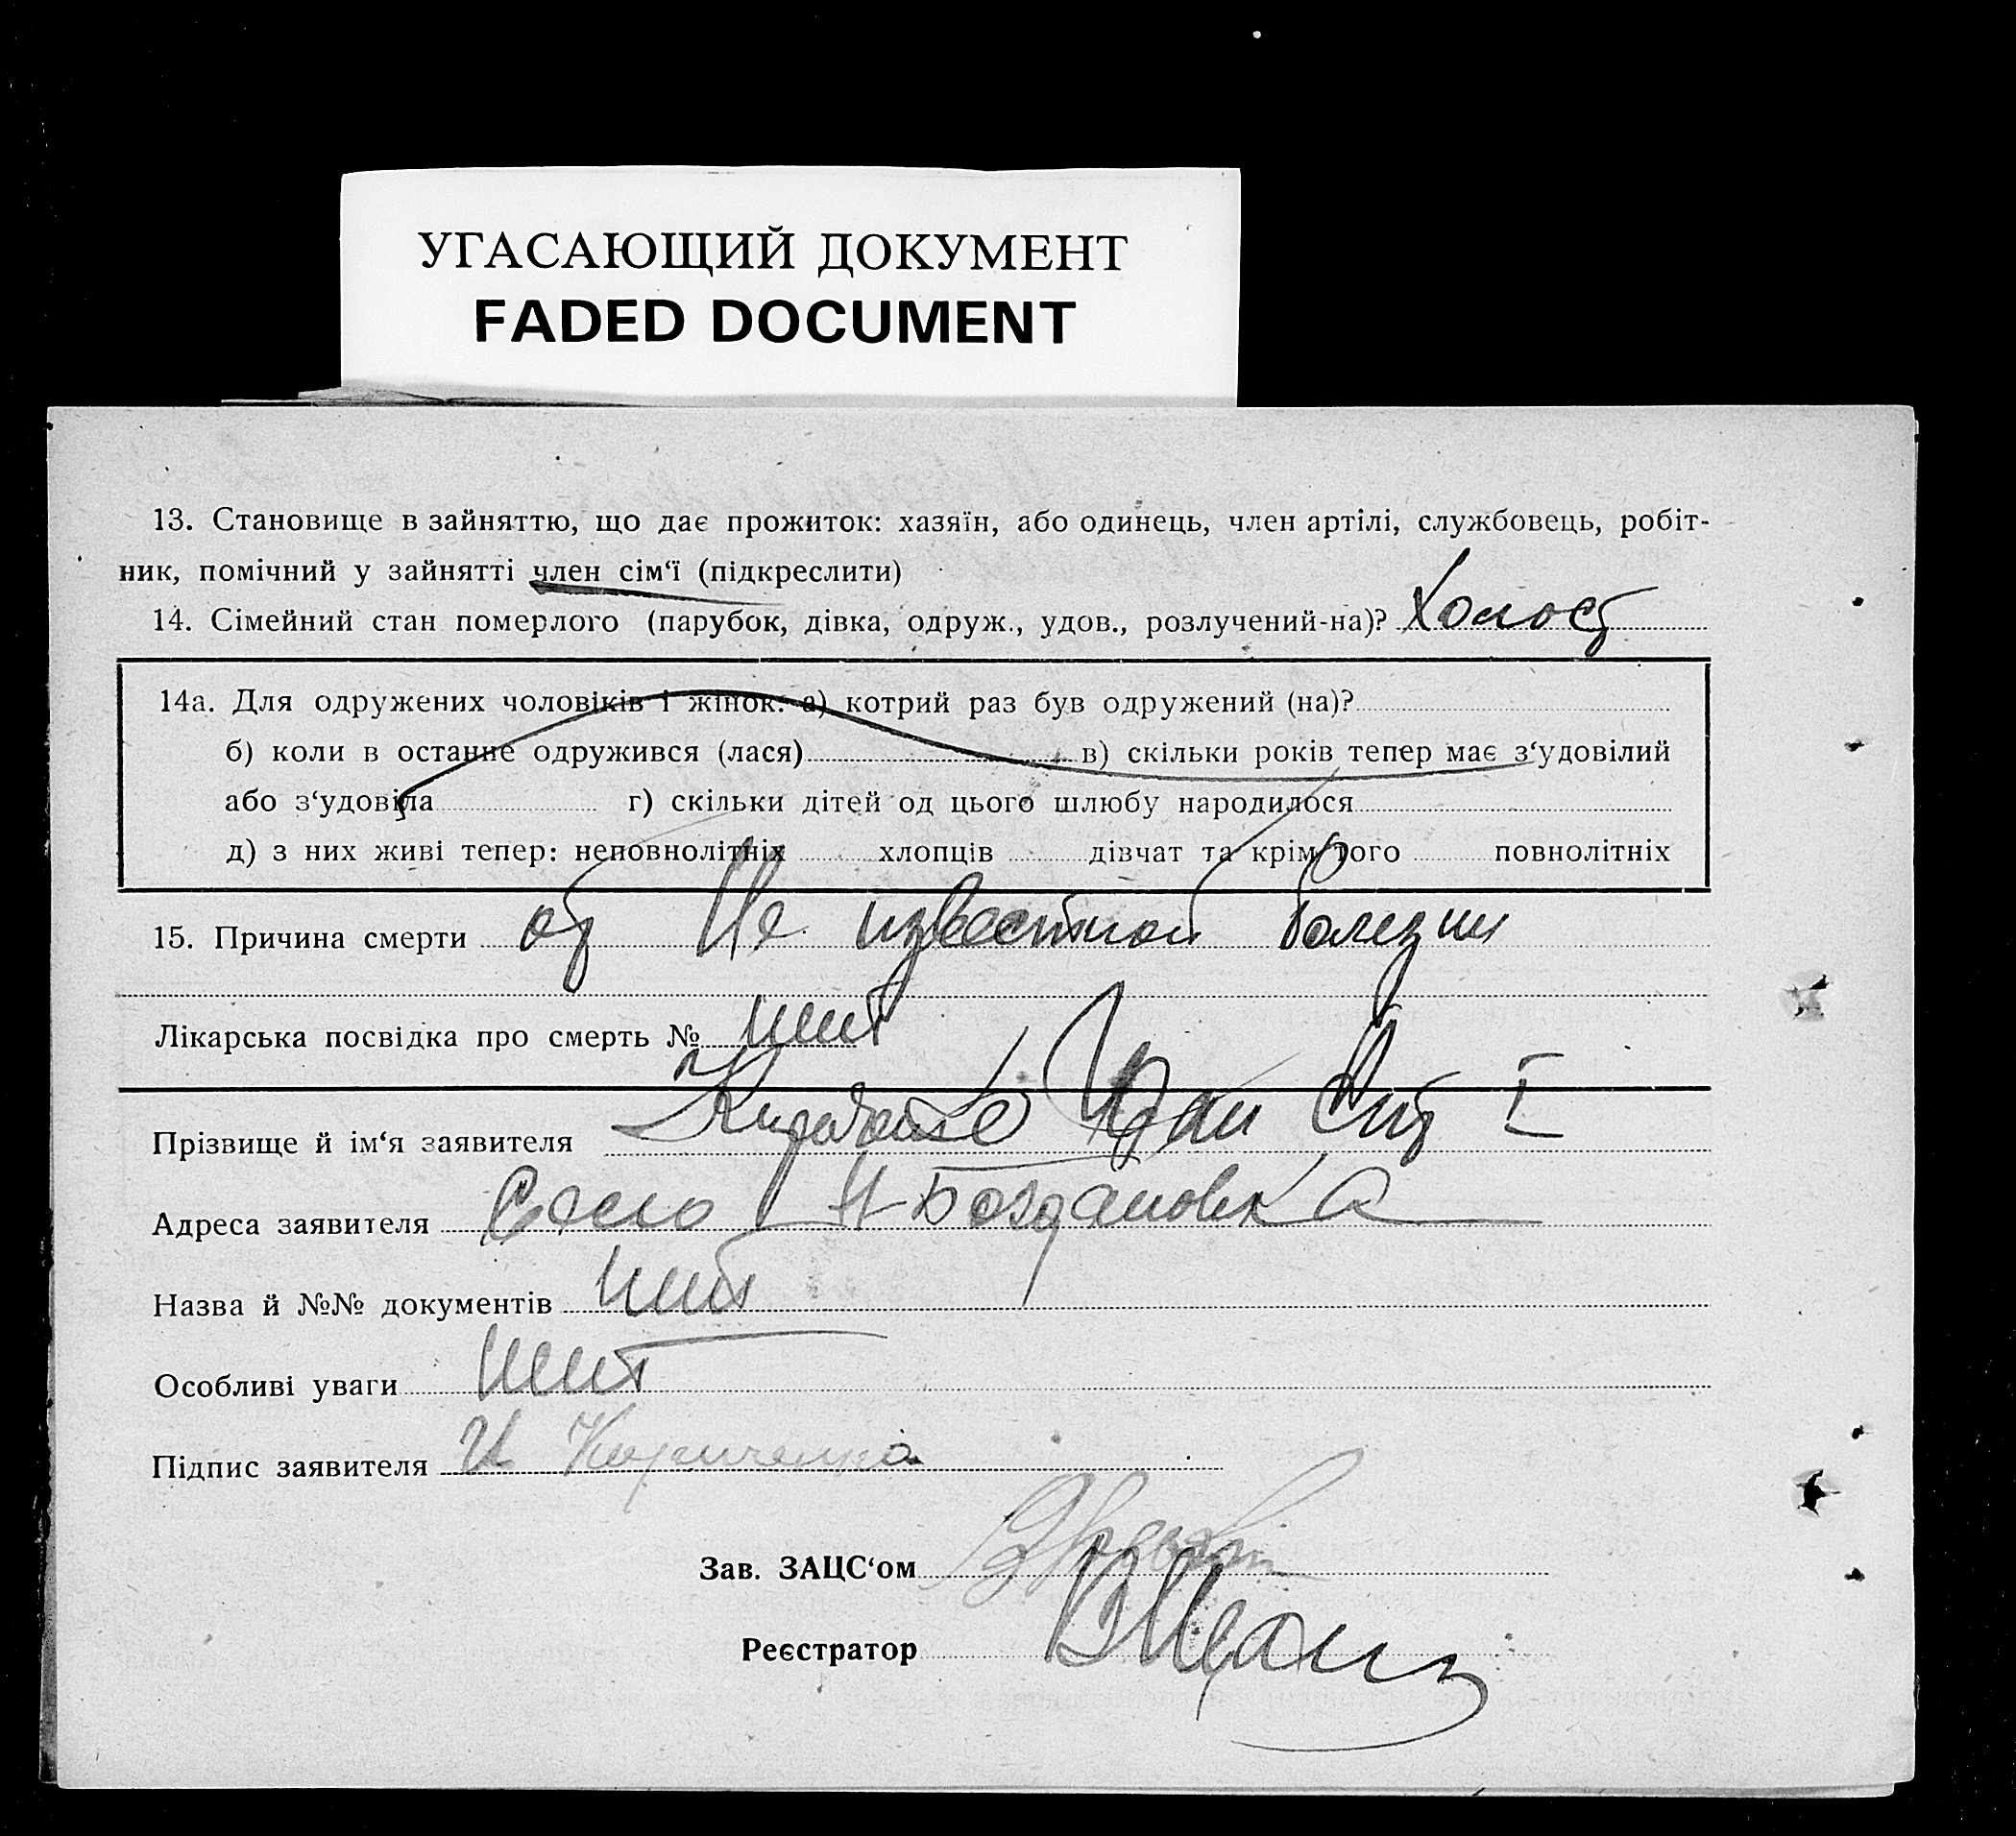 УГАСАЮЩИЙ ДОКУМЕНТ
FADED DOCUMENT
13. Становище в зайняттю, що дає прожиток: хазяїн, або одинець, член артілі, службовець, робіт-
ник, помічний у зайнятті член сім‘ї (підкреслити)
14. Сімейний стан померлого (парубок, дівка, одруж., удов., розлучений-на)? Холост
14а. Для одружених чоловіків і жінок: а) котрий раз був одружений (на)?
б) коли в останнє одружився (лася) в) скільки років тепер має з‘удовілий
або з‘удовіла г) скільки дітей од цього шлюбу народилося
д) з них живі тепер: неповнолітніх хлопців дівчат та крім того повнолітніх
15. Причина смерти от Не известной болезни
Лікарська посвідка про смерть № нит
Прізвище й ім‘я заявителя
Адреса заявителя Село Н-Богдановка
Назва й №№ документів нит
Особливі уваги нит
Підпис заявителя И
Зав. ЗАЦС‘ом
Реєстратор